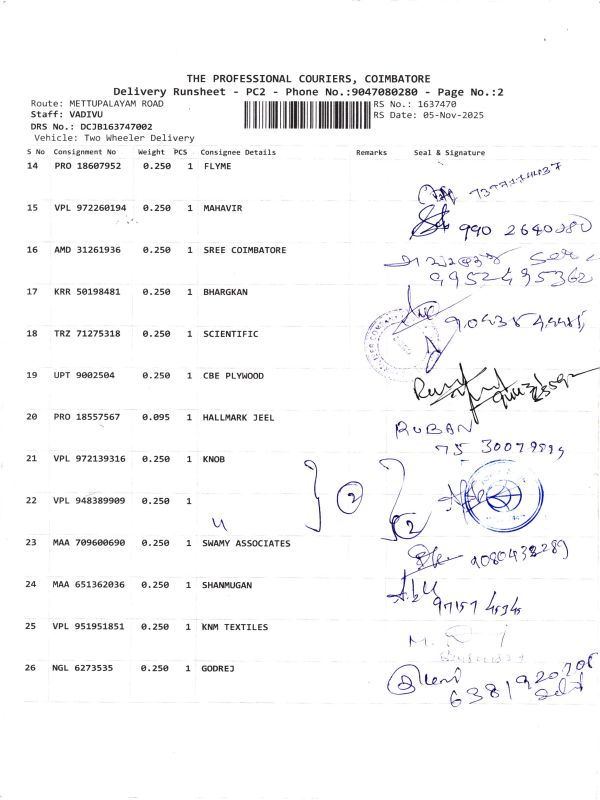 THE PROFESSIONAL COURIERS, COIMBATORE
Delivery Runsheet - PC2 - Phone No.:9047080280 - Page No.:2
Route: METTUPALAYAM ROAD RS No.: 1637470
Staff: VADIVU RS Date: 05-Nov-2025
DRS No.: DCJB163747002
Vehicle: Two Wheeler Delivery
S No Consignment No Weight PCS Consignee Details Remarks Seal & Signature
14 PRO 18607952 0.250 1 FLYME
15 VPL 972260194 0.250 1 MAHAVIR
990 2640080
16 AMD 31261936 0.250 1 SREE COIMBATORE
9952495362
17 KRR 50198481 0.250 1 BHARGKAN
18 TRZ 71275318 0.250 1 SCIENTIFIC
19 UPT 9002504 0.250 1 CBE PLYWOOD
20 PRO 18557567 0.095 1 HALLMARK JEEL RUBAN
21 VPL 972139316 0.250 1 KNOB
22 VPL 948389909 0.250 1 2 2
23 MAA 709600690 0.250 1 SWAMY ASSOCIATES
24 MAA 651362036 0.250 1 SHANMUGAN
25 VPL 951951851 0.250 1 KNM TEXTILES
26 NGL 6273535 0.250 1 GODREJ